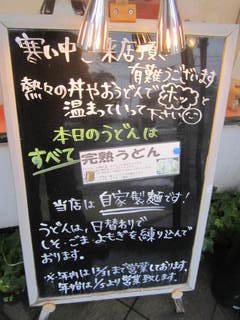 寒い中ご来店頂き
有難うございます
熱々の丼やおうどんでホッと
温まっていって下さい
本日のうどんは
すべて
完熟うどん
当店は自家製麺です!
うどんは、日替わりで
しそ・ごま・よもぎを練り込んで
おります。
※年内は12/31まで営業しております。
年始は1/5より営業致します。